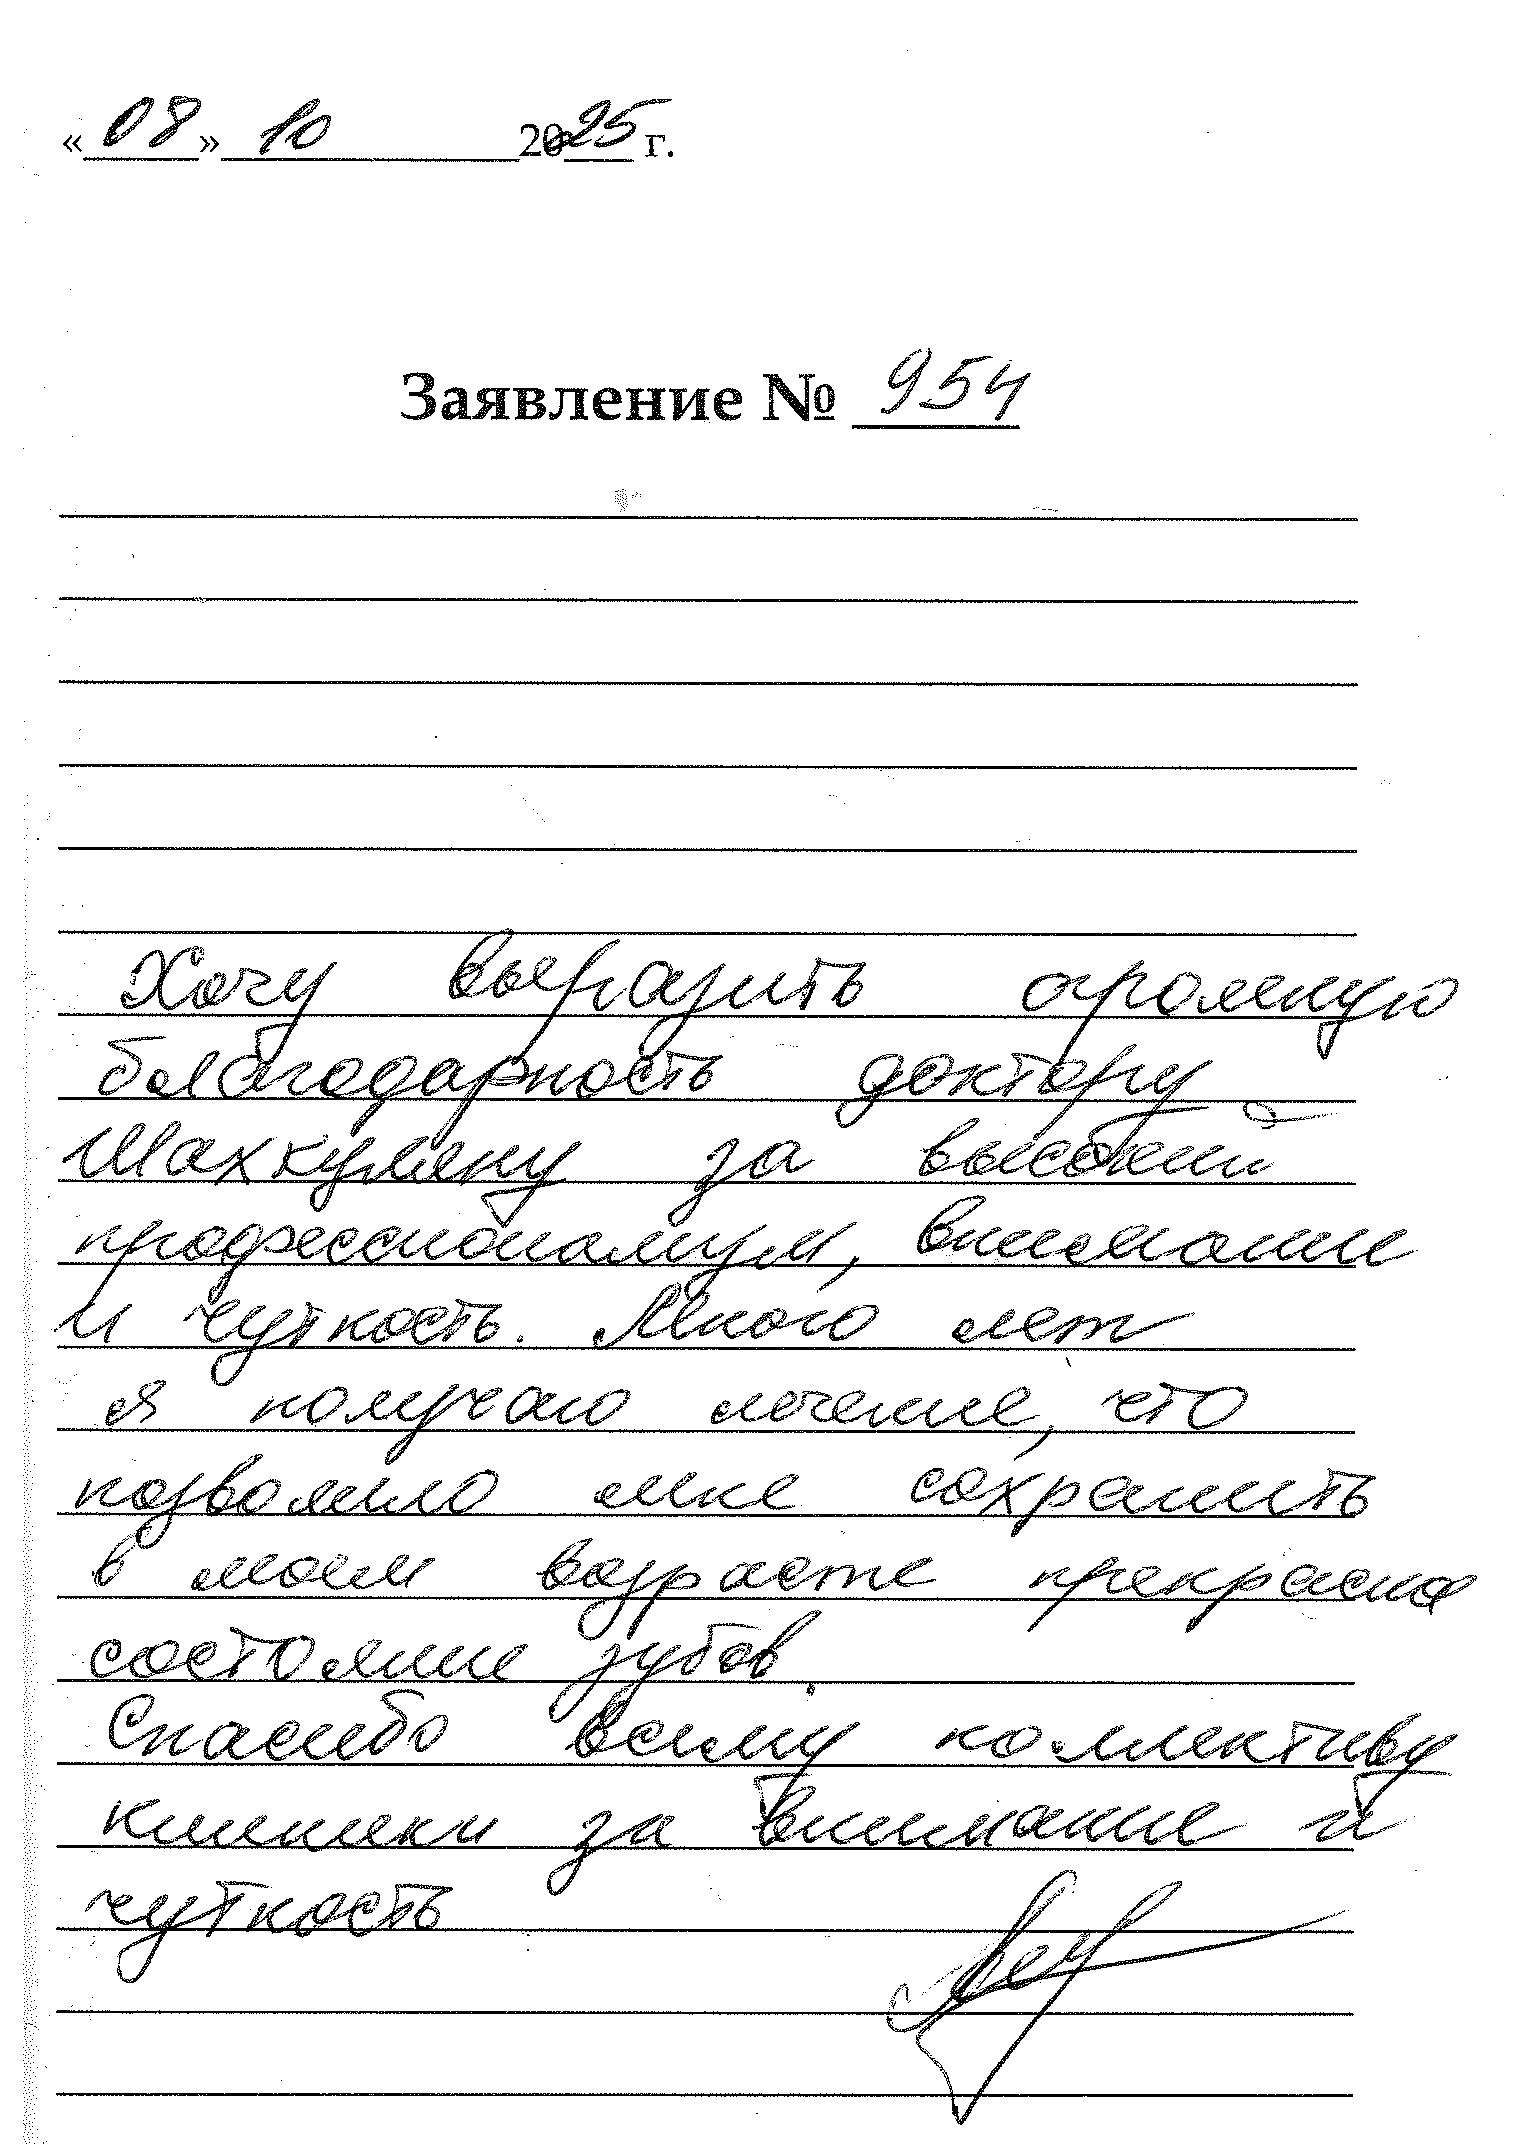 «08» 10 2025 г.
Заявление № 954
Хочу выразить огромную
благодарность доктору
Шахкуляну за высокий
профессионализм, внимание
и чуткость. Много лет
я получаю лечение, что
позволило мне сохранить
в моем возрасте прекрасное
состояние зубов.
Спасибо всему коллективу
клиники за внимание и
чуткость